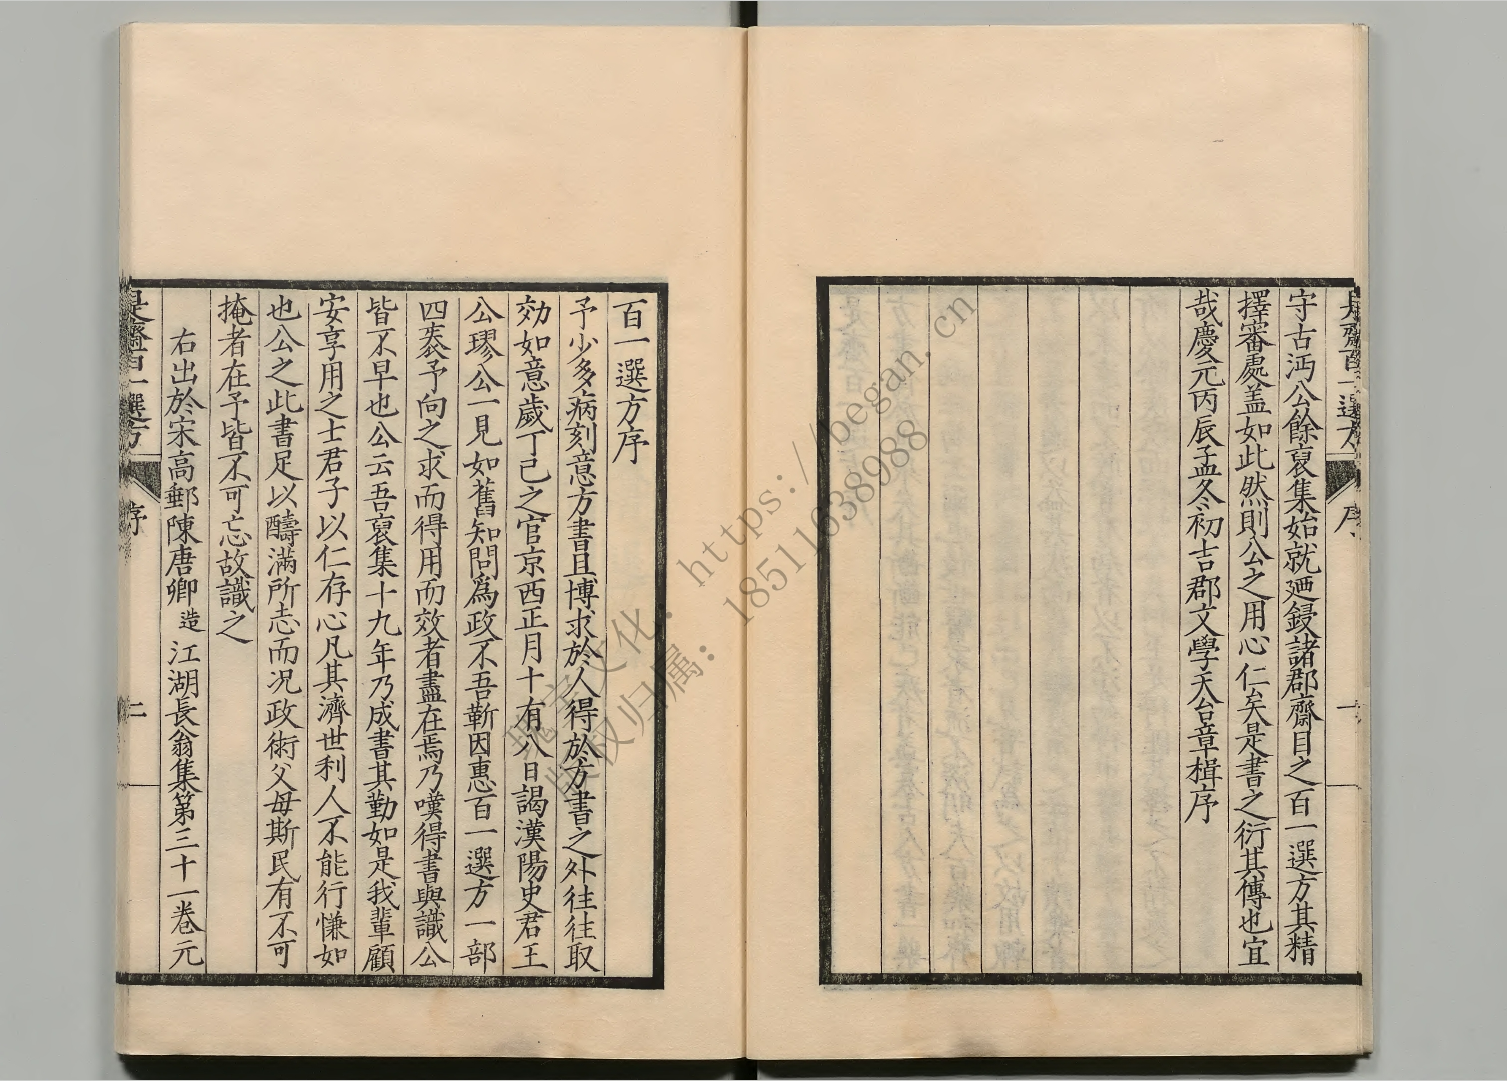 是齋百一選方 序 一
守古沔公餘裒集始就廼鋟諸郡齋目之百一選方其精
擇審處蓋如此然則公之用心仁矣是書之衍其傳也宜
哉慶元丙辰孟冬初吉郡文學天台章楫序
百一選方序
予少多病刻意方書且博求於人得於方書之外往往取
効如意歲丁巳之官京西正月十有八日謁漢陽史君王
公璆公一見如舊知問爲政不吾靳因惠百一選方一部
四袠予向之求而得用而效者盡在焉乃嘆得書與識公
皆不早也公云吾裒集十九年乃成書其勤如是我輩顧
安享用之士君子以仁存心凡其濟世利人不能行慊如
也公之此書足以醻滿所志而况政術父母斯民有不可
掩者在予皆不可忘故識之
右出於宋高郵陳唐卿造江湖長翁集第三十一卷元
是齋百一選方 序 二
瑰宝文化：https://began.cn
版权归属：18511638988